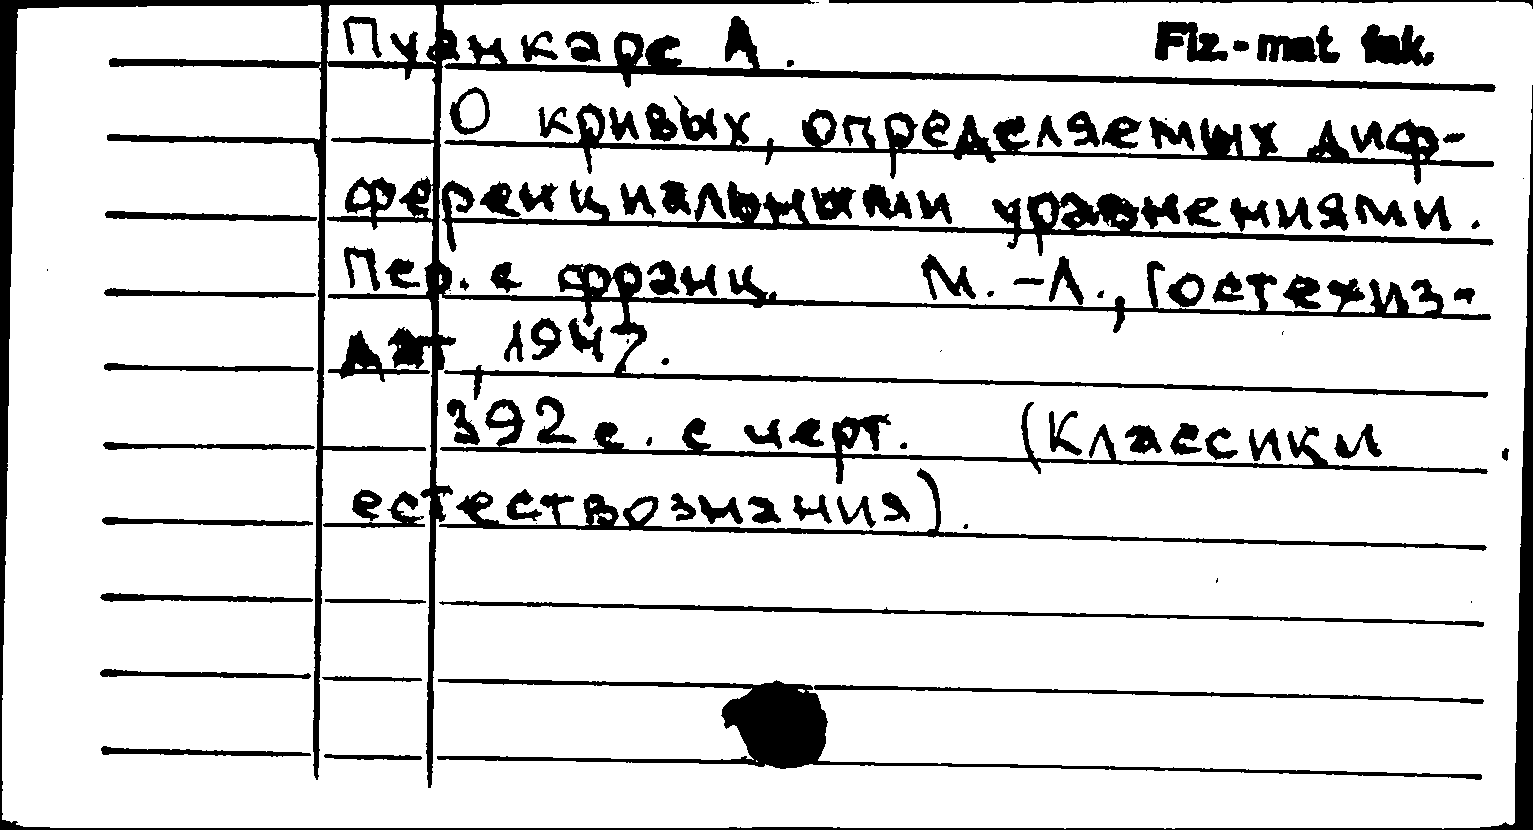 Пуанкаре А. Fiz.-mat. fak.
О кривых, определяемых диф-
ференциальными уравнениями.
Пер. с франц. М.-Л., Гостехиз-
дат, 1947.
392 с. с черт. (Классики
естествознания).